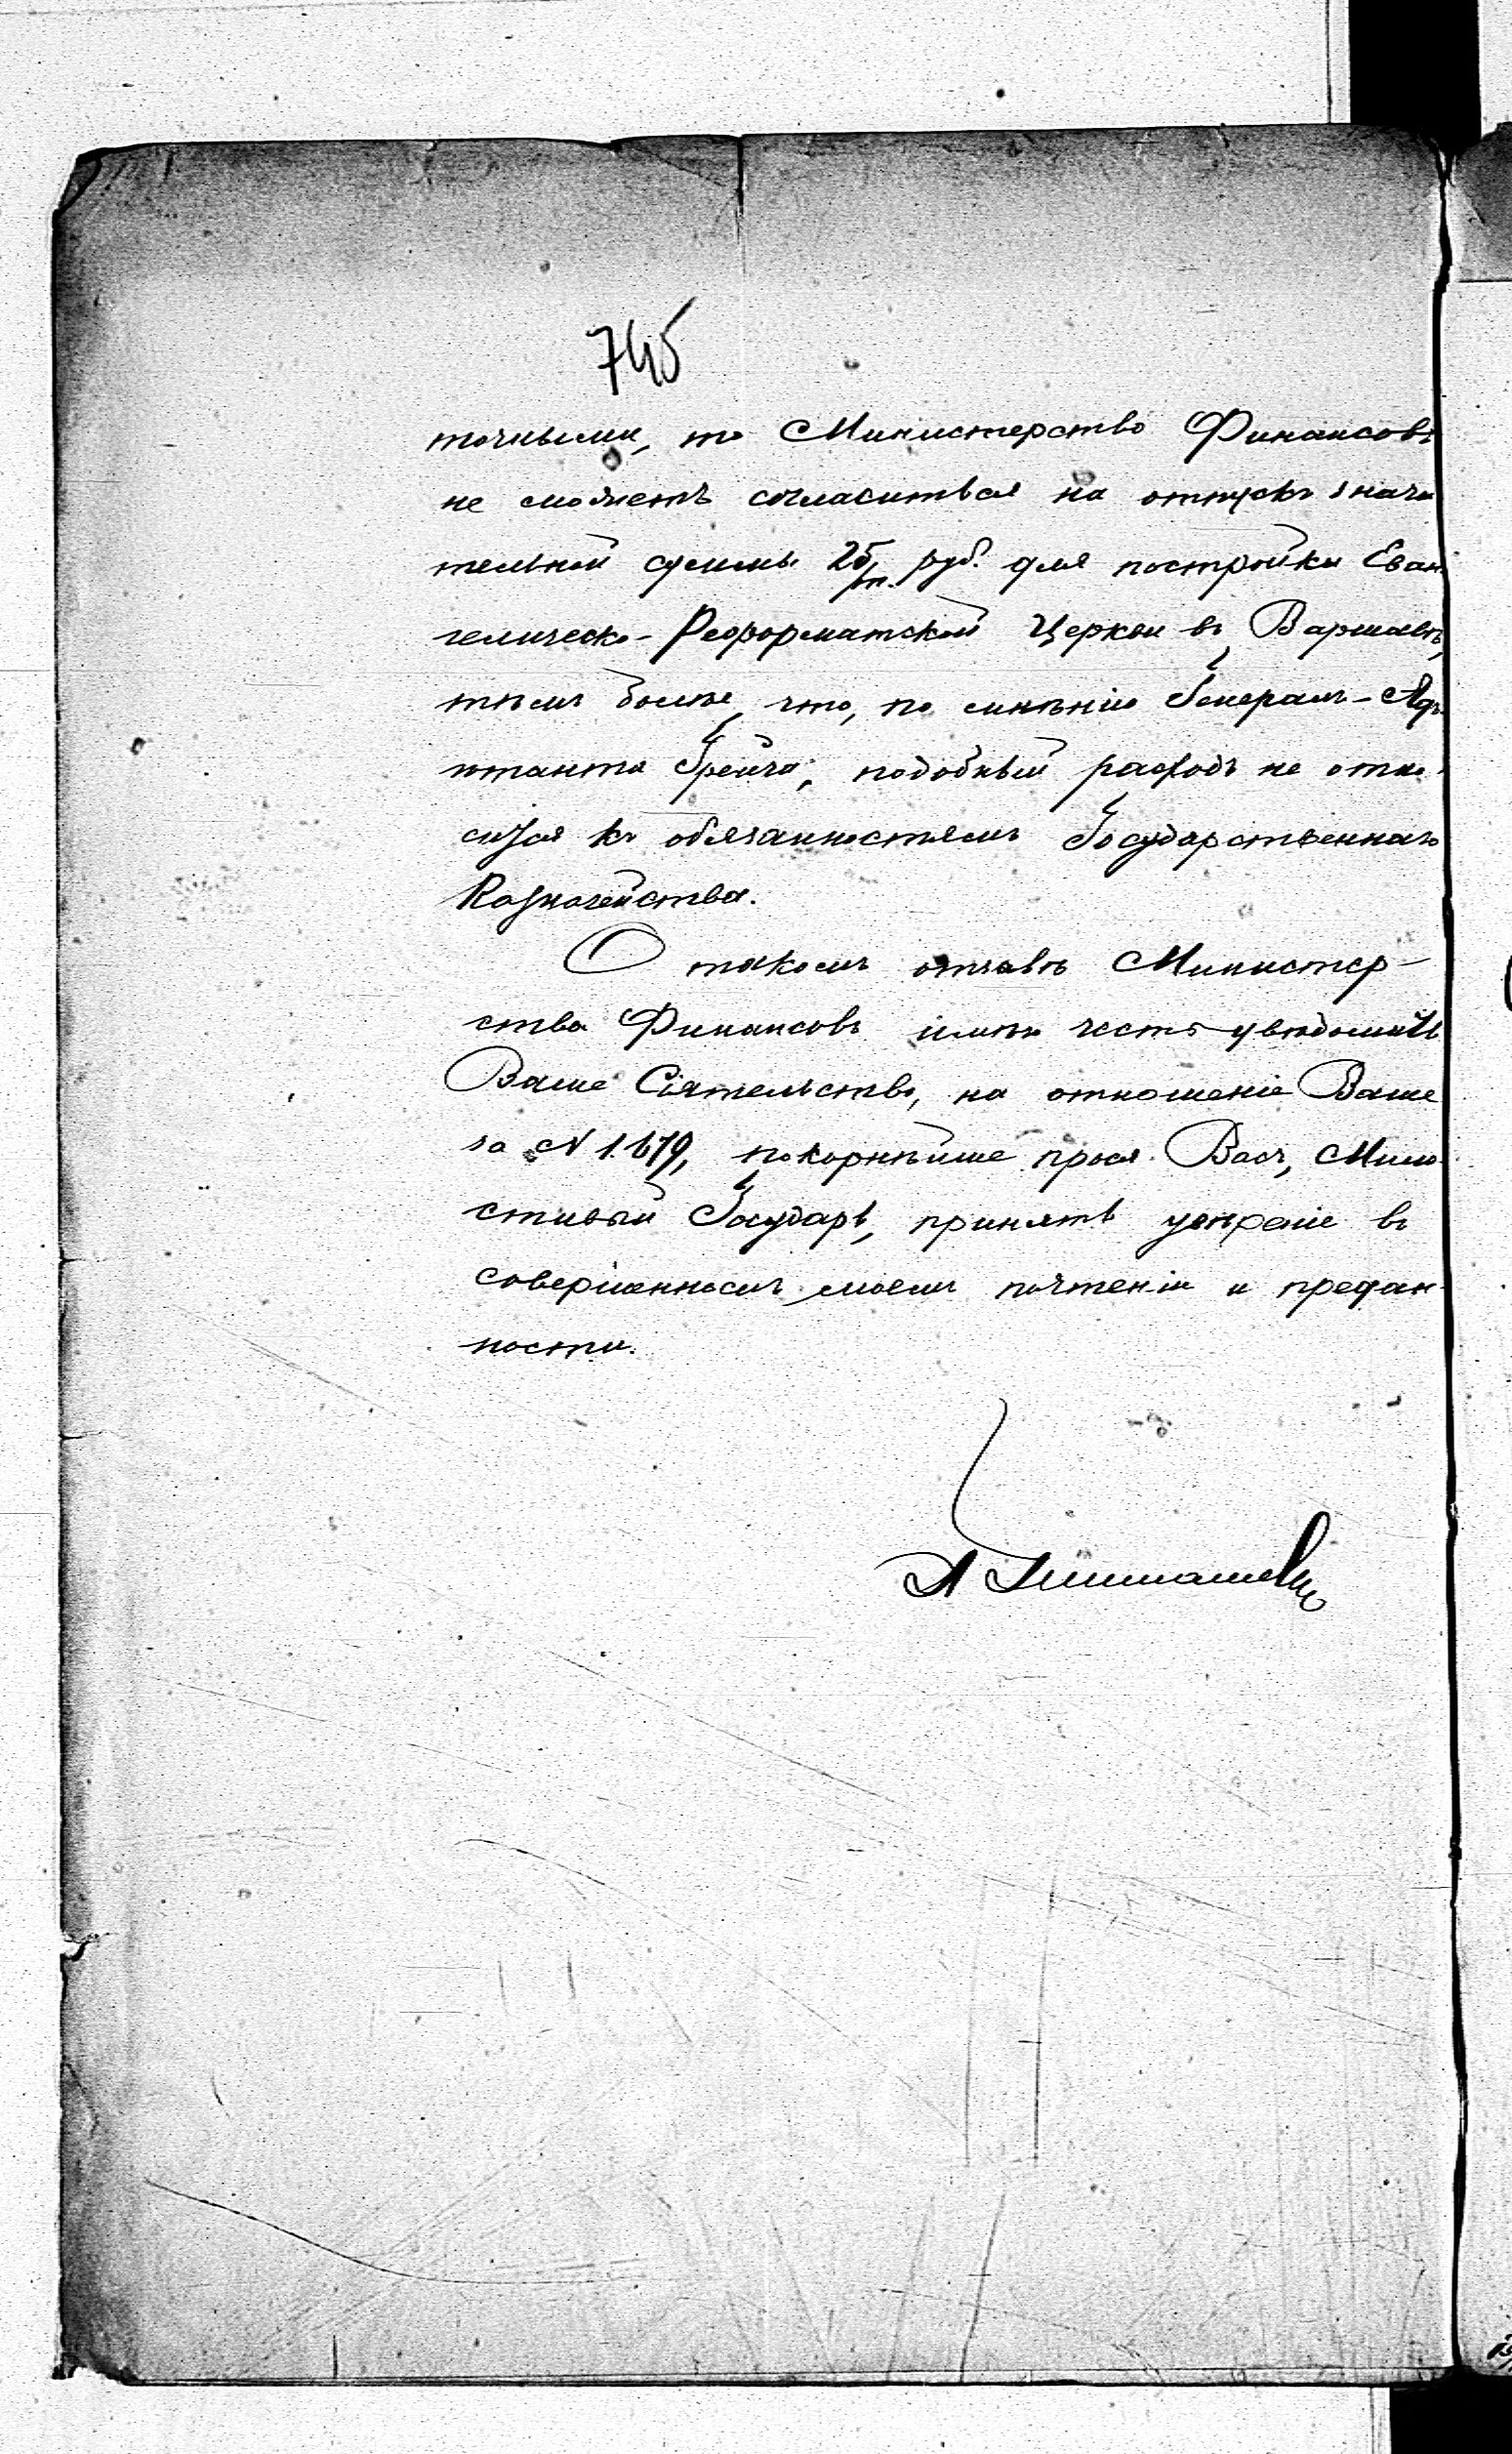 745
точными, то Министерство Финансовъ
не можетъ согласиться на отпускъ значи
тельной суммы 25/т. руб. для постройки Еван
гелическо-Реформатской Церкви въ Варшавѣ,
тѣмъ болѣе, что, по мнѣнію Генералъ-Адъ
ютанта Грейга, подобный расходъ не отно-
сится къ обязанностямъ Государственнаго
Казначейства.
О такомъ отзывѣ Министер-
ства Финансовъ имѣю честь увѣдомить
Ваше Сіятельство, на отношеніе Ваше
за № 1.679, покорнѣйше прося Васъ, Мило
стивый Государь, принять увѣреніе въ
совершенномъ моемъ почтеніи и предан-
ности.
А Тимашевъ